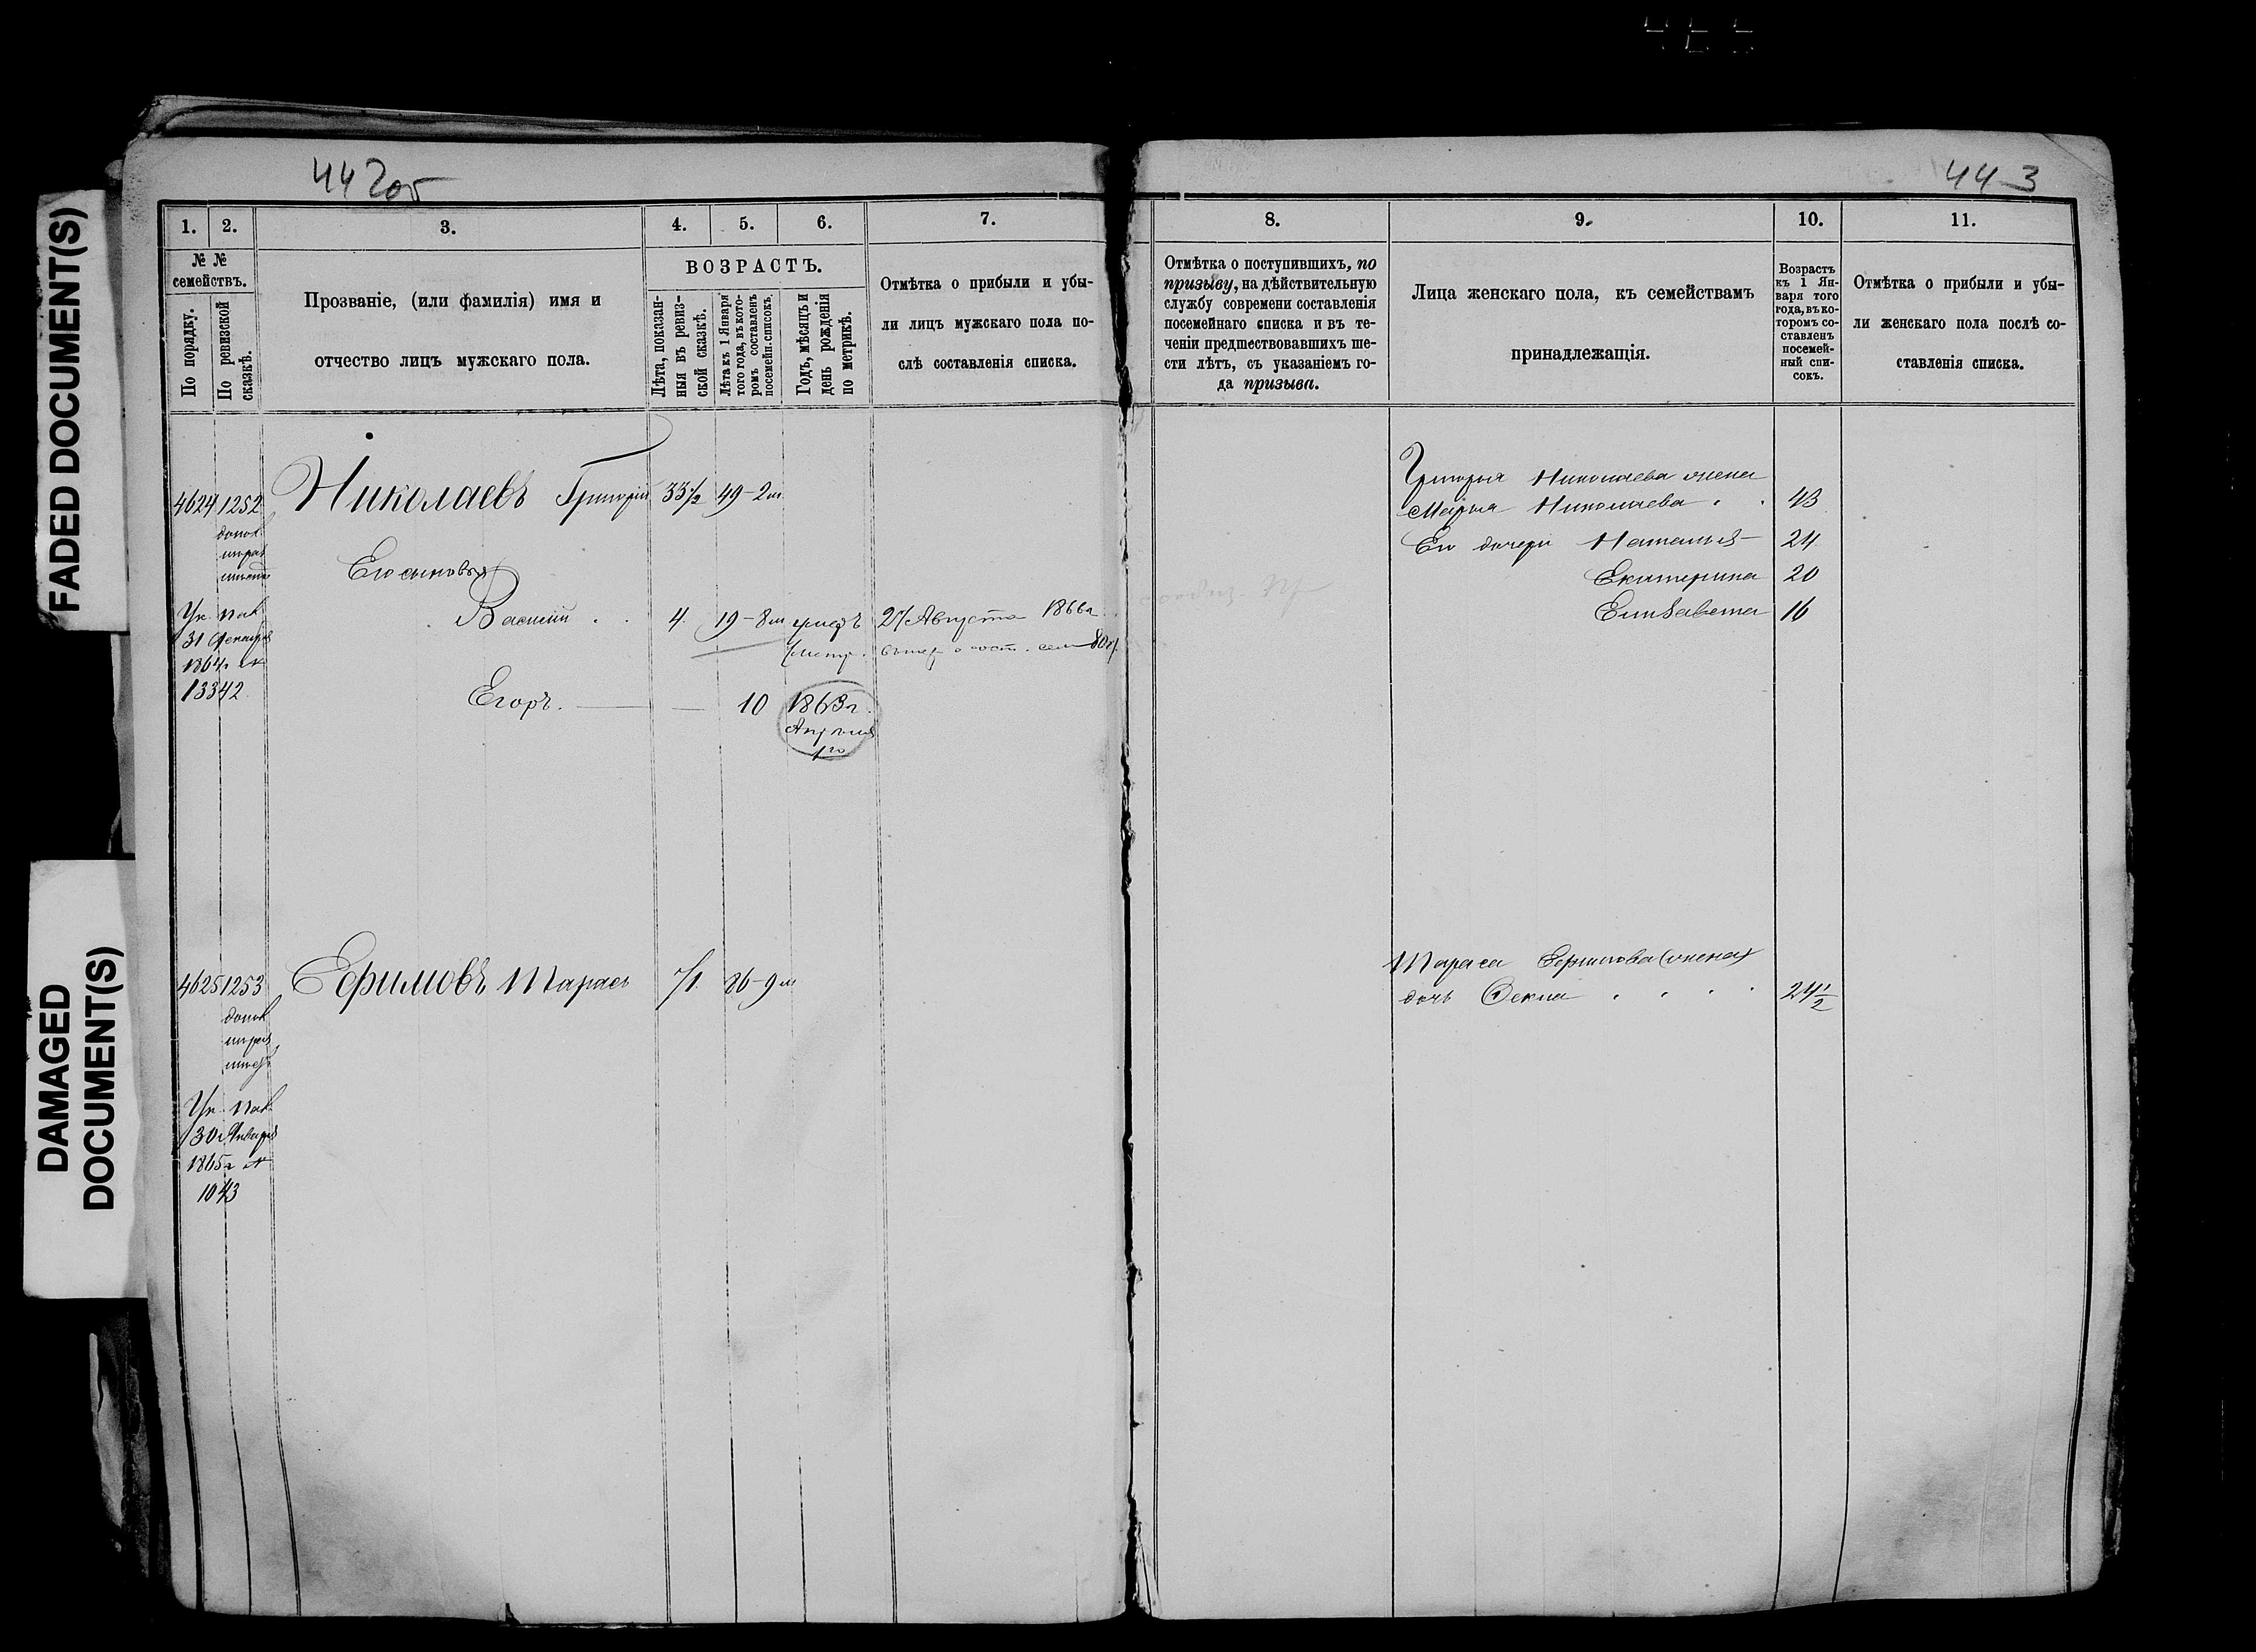 FADED DOCUMENT(S)
DAMAGED
DOCUMENT(S)
442об
443
1.
2.
3.
4.
5.
6.
7.
8.
9.
10.
11.
№ №
семействъ.
По порядку.
По ревизской
сказкѣ.
Прозваніе, (или фамилія) имя и
отчество лицъ мужскаго пола.
ВОЗРАСТЪ.
Лѣта, показан-
ныя въ ревиз-
ской сказкѣ.
Лѣта къ 1 Января
того года, въ кото-
ромъ составленъ
посемейн. списокъ.
Годъ, мѣсяцъ и
день рожденія
по метрикѣ.
Отмѣтка о прибыли и убы-
ли лицъ мужскаго пола по-
слѣ составленія списка.
Отмѣтка о поступившихъ, по
призыву, на дѣйствительную
службу современи составленія
посемейнаго списка и въ те-
ченіи предшествовавшихъ ше-
сти лѣтъ, съ указаніемъ го-
да призыва.
Лица женскаго пола, къ семействамъ
принадлежащія.
Возрастъ
къ 1 Ян-
варя того
года, въ ко-
торомъ со-
ставленъ
посемей-
ный спи-
сокъ.
Отмѣтка о прибыли и убы-
ли женскаго пола послѣ со-
ставленія списка.
4624 1252 Николаевъ Григорій 33½ 49-2м
Его сыновья
Василій 4 19-8м умеръ 27 Августа 1866г
Ук. пал.
31 Декабря
1864г №
13342
Егоръ. 10 1863г.
Апрѣля
1го
Григорья Николаева жена
Марья Николаева 43
Его дочери Наталья 24
Екатерина 20
Елизавета 16
4625 1253 Ефимовъ Тарасъ 71 86-9м
Ук. пал.
30 Января
1865г №
1043
Тараса Ефимова (жена)
дочь Фекла 24½